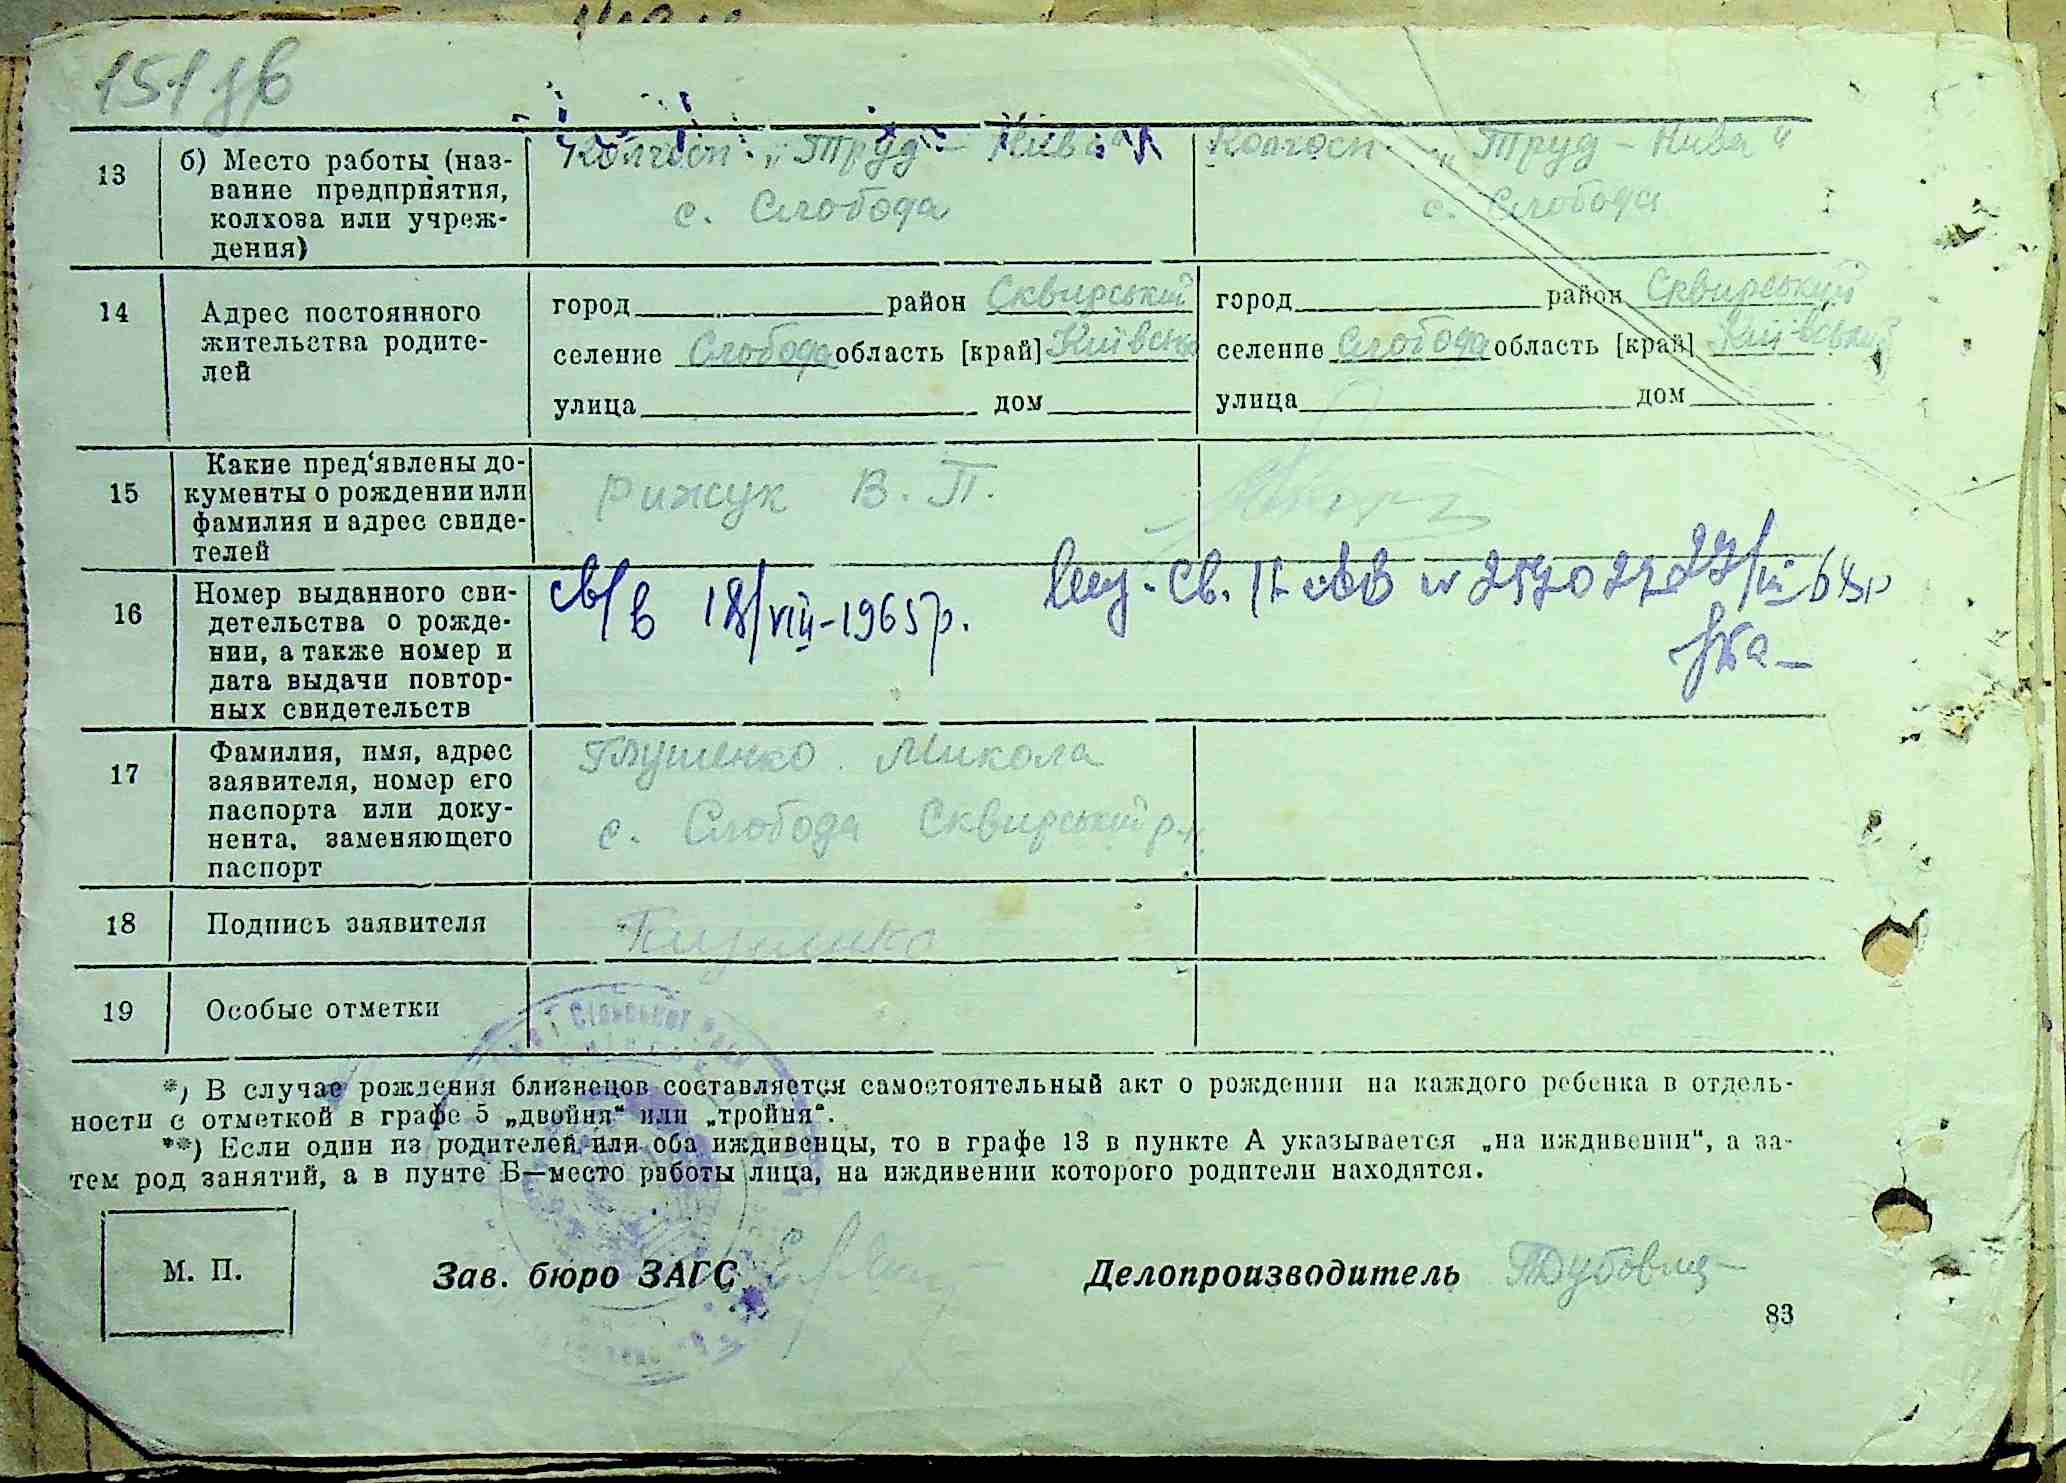 151 зв
13 б) Место работы (наз- Колгосп „Труд - Нива" Колгосп „Труд - Нива"
вание предприятия, с. Слобода с. Слобода
колхоза или учреж-
дения)
14 Адрес постоянного жительства родите- лей
город район Сквирський город район Сквирський
селение Слобода область [край] Київськ селение Слобода область [край] Київський
улица дом улица дом
15 Какие пред'явлены до- Рижук В. П.
кументы о рождении или
фамилия и адрес свиде-
телей
16 Номер выданного сви- св/в 18/VIII-1965р.
детельства о рожде-
нии, а также номер и
дата выдачи повтор-
ных свидетельств
17 Фамилия, имя, адрес Глушенко Микола
заявителя, номер его
паспорта или доку- с. Слобода Сквирський р-н
нента, заменяющего
паспорт
18 Подпись заявителя Глушенко
19 Особые отметки
*) В случае рождения близнецов составляется самостоятельный акт о рождении на каждого ребенка в отдель-
ности с отметкой в графе 5 „двойня" или „тройня".
**) Если один из родителей или оба иждивенцы, то в графе 13 в пункте А указывается „на иждивении", а за-
тем род занятий, а в пунте Б—место работы лица, на иждивении которого родители находятся.
М. П. Зав. бюро ЗАГС Делопроизводитель
83